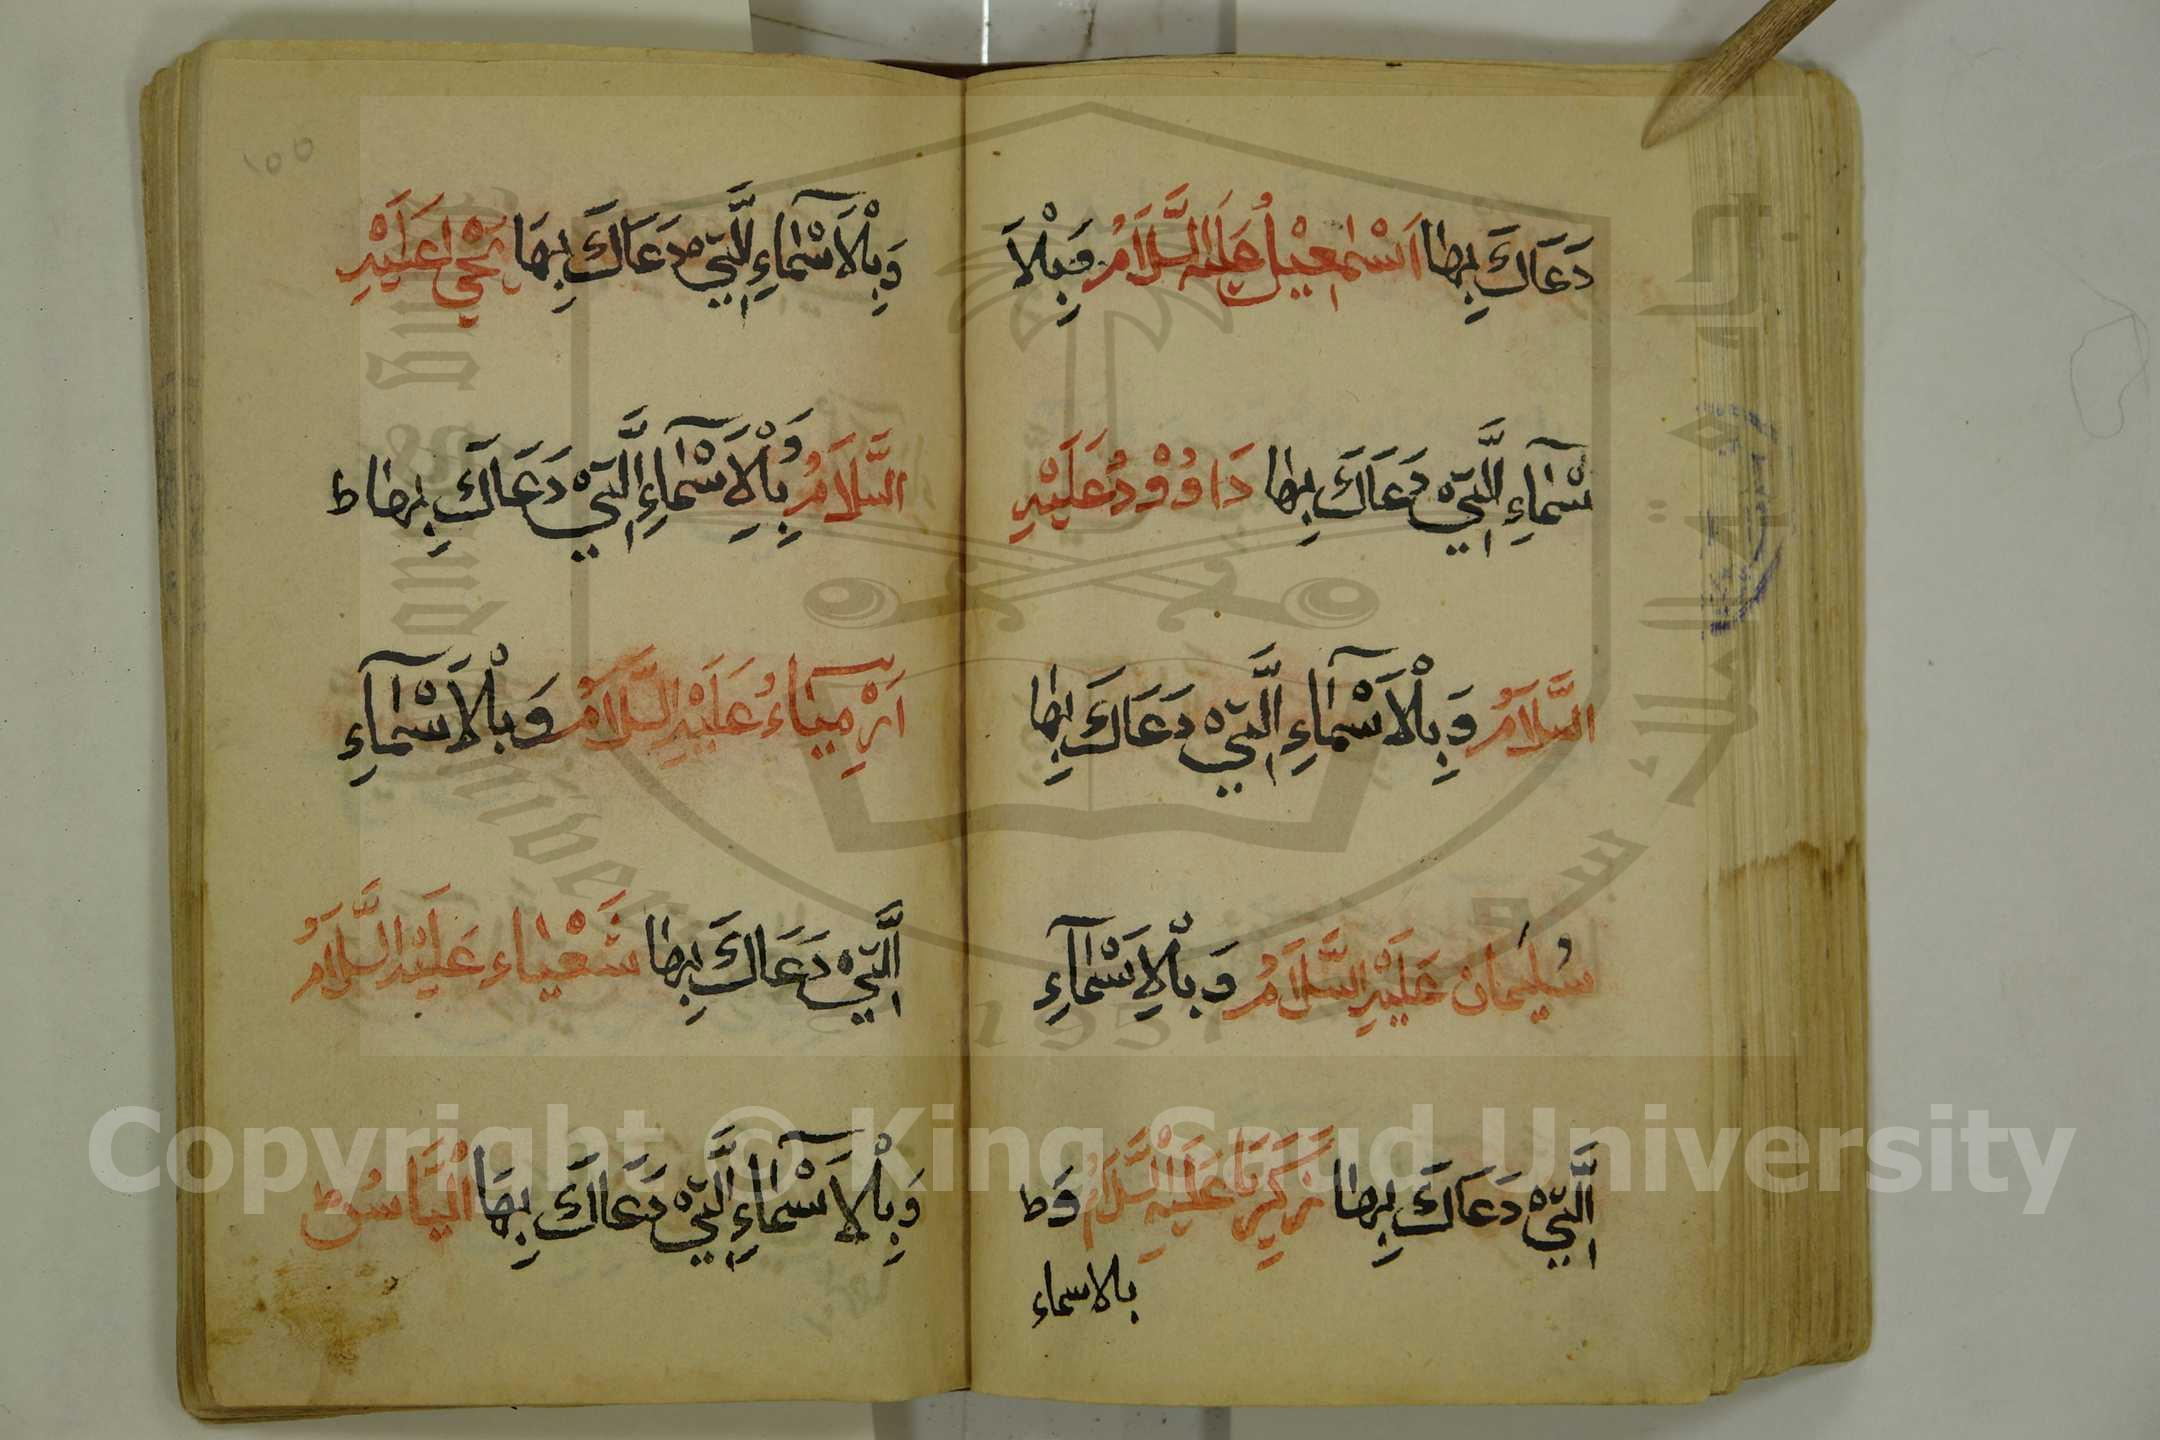 دَعَاكَ بِهَا اَسْمٰعِيْلُ عَلَيْهِ السَّلَامُ وَبِلْاَ
سْمَآءِ الَّتِيْ دَعَاكَ بِهَا دَاوُوْدُ عَلَيْهِ
السَّلَامُ وَبِلْاَسْمَآءِ الَّتِيْ دَعَاكَ بِهَا
سُلَيْمَانْ عَلَيْهِ السَّلَامُ وَبِلْاَسْمَآءِ
الَّتِيْ دَعَاكَ بِهَا زَكَرِيَّا عَلَيْهِ السَّلَامُ وَ ط
بالاسماء
١٥٥
وَبِلْاَسْمَآءِ الَّتِيْ دَعَاكَ بِهَا يَحْيٰ عَلَيْهِ
السَّلَامُ وَبِلْاَسْمَآءِ الَّتِيْ دَعَاكَ بِهَا ط
اَرْمِيَآءُ عَلَيْهِ السَّلَامُ وَبِلْاَسْمَآءِ
الَّتِيْ دَعَاكَ بِهَا شَعْيَاء عَلَيْهِ السَّلَامُ
وَبِلْاَسْمَآءِ الَّتِيْ دَعَاكَ بِهَا اِلْيَاسُ ط
King Saud University
1957
Copyright © King Saud University